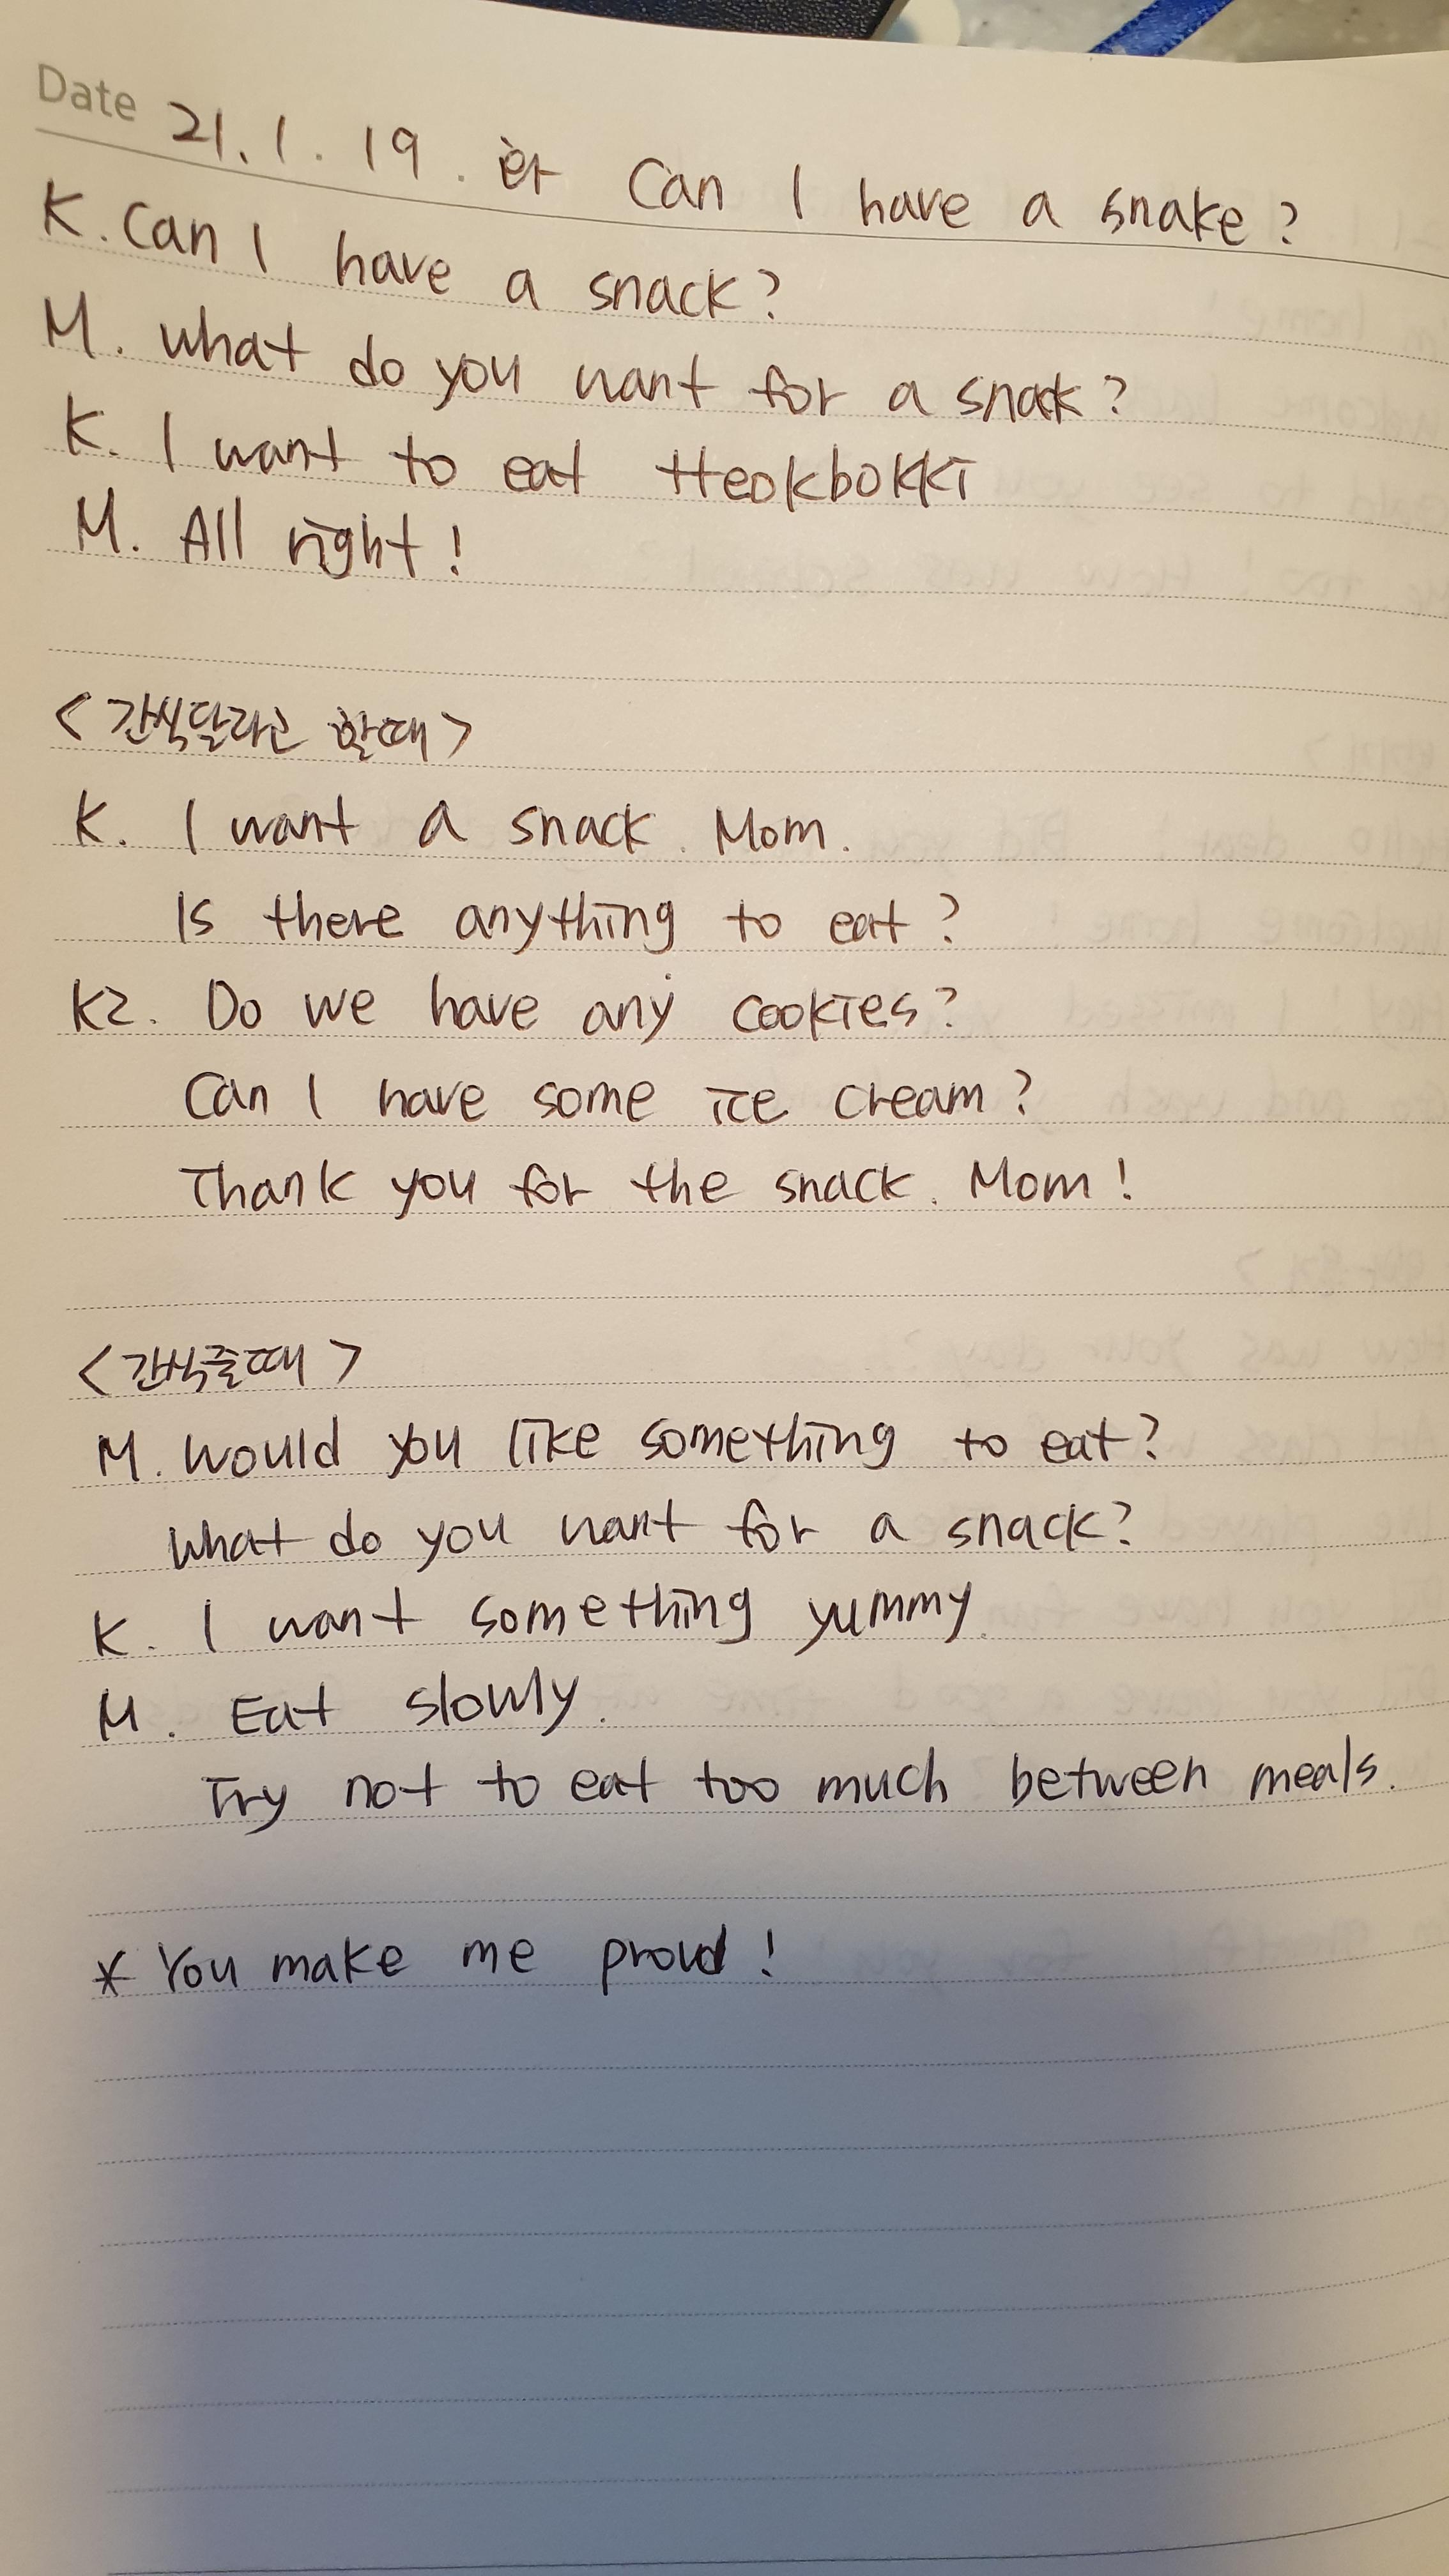 Date 21. 1. 19. 화 Can I have a snake?
K. Can I have a snack?
M. what do you want for a snack?
K. I want to eat tteokbokki
M. All right!
<간식달라고 할때>
K. I want a snack. Mom.
Is there anything to eat?
K2. Do we have any cookies?
Can I have some ice cream?
Thank you for the snack. Mom!
<간식줄때>
M. would you like something to eat?
What do you want for a snack?
K. I want something yummy.
M. Eat slowly.
Try not to eat too much between meals.
* You make me proud!